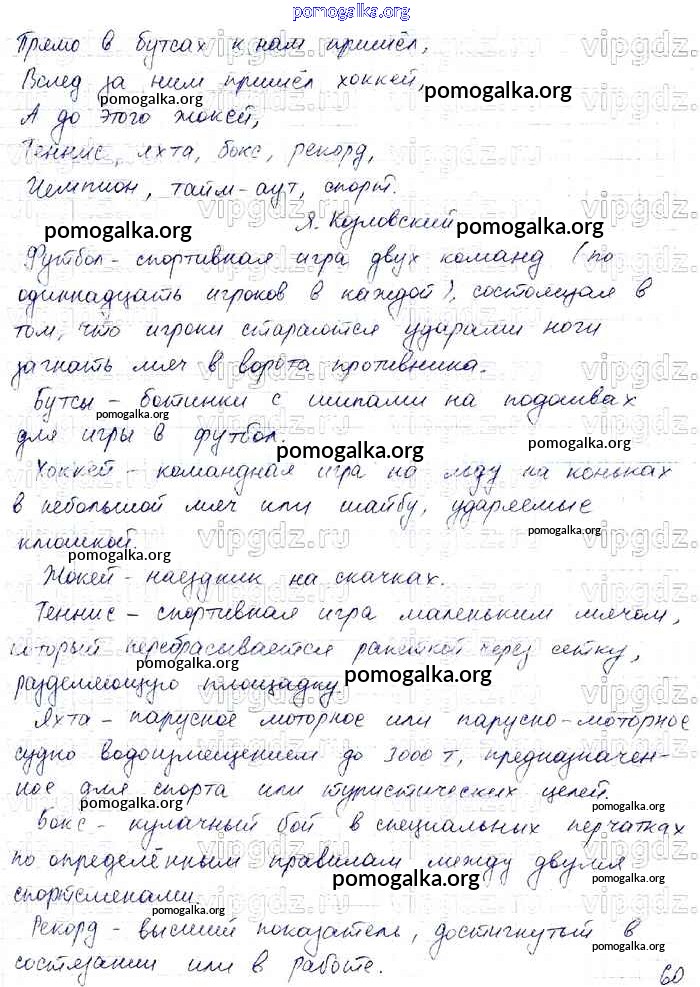 pomogalka.org
Прямо в бутсах к нам пришёл,
Вслед за ним пришёл хоккей,
А до этого жокей,
Теннис, яхта, бокс, рекорд,
Чемпион, тайм-аут, спорт.
Я. Козловский
Футбол - спортивная игра двух команд (по
одиннадцать игроков в каждой), состоящая в
том, что игроки стараются ударами ноги
загнать мяч в ворота противника.
Бутсы - ботинки с шипами на подошвах
для игры в футбол.
Хоккей - командная игра на льду на коньках
в небольшой мяч или шайбу, ударяемые
клюшкой.
Жокей - наездник на скачках.
Теннис - спортивная игра маленьким мячом,
который перебрасывается ракеткой через сетку,
разделяющую площадку.
Яхта - парусное моторное или парусно-моторное
судно водоизмещением до 3000 т, предназначен-
ное для спорта или туристических целей.
Бокс - кулачный бой в специальных перчатках
по определённым правилам между двумя
спортсменами.
Рекорд - высший показатель, достигнутый в
состязании или в работе.
60